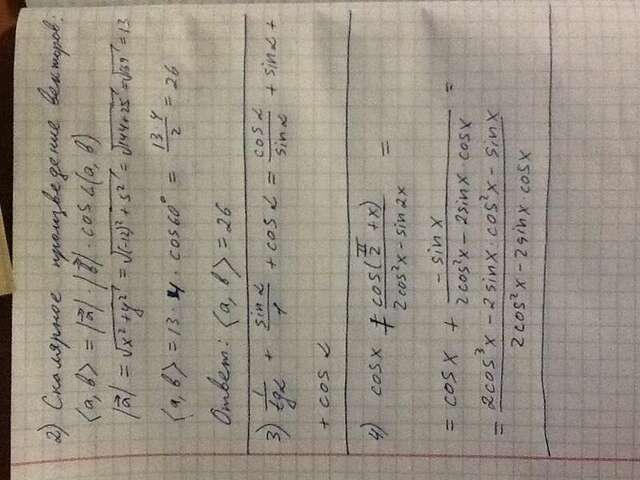 2) Скалярное произведение векторов:
⟨a, b⟩ = |a⃗| · |b⃗| · cos ∠(a, b)
|a⃗| = √(x² + y²) = √((-12)² + 5²) = √(144 + 25) = √169 = 13
⟨a, b⟩ = 13 · 4 · cos 60° = 13·4/2 = 26
Ответ: ⟨a, b⟩ = 26
3) 1/tg α + sin α/1 + cos α = cos α/sin α + sin α +
+ cos α
4) cos x + cos(π/2 + x)/(2cos²x - sin 2x) =
= cos x + -sin x/(2cos²x - 2sin x · cos x) =
= (2cos³x - 2sin x · cos²x - sin x)/(2cos²x - 2sin x · cos x)